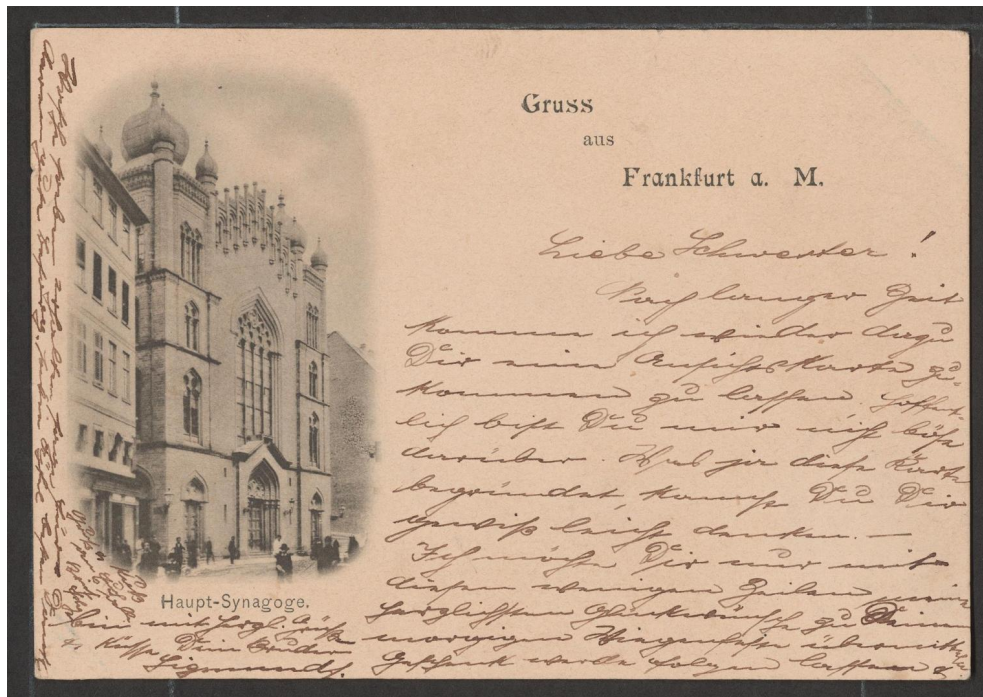 Gruss
aus
Frankfurt a. M.
Liebe Schwester!
Nach langer Zeit
komme ich wieder dazu
Dir eine Ansichtskarte zu-
kommen zu lassen. Hoffent-
lich bist Du mir nicht böse
darüber. Was ja diese Karte
begründet, kannst Du Dir
gewiß leicht denken. —
Ich möchte Dir nur mit
diesen wenigen Zeilen meine
herzlichsten Glückwünsche zu Deinem
morgigen Wiegenfeste übermitteln.
Geschenk werde folgen lassen &
Haupt-Synagoge.
bin mit herzl. Grüße
Küsse Dein Bruder
Sigmund.